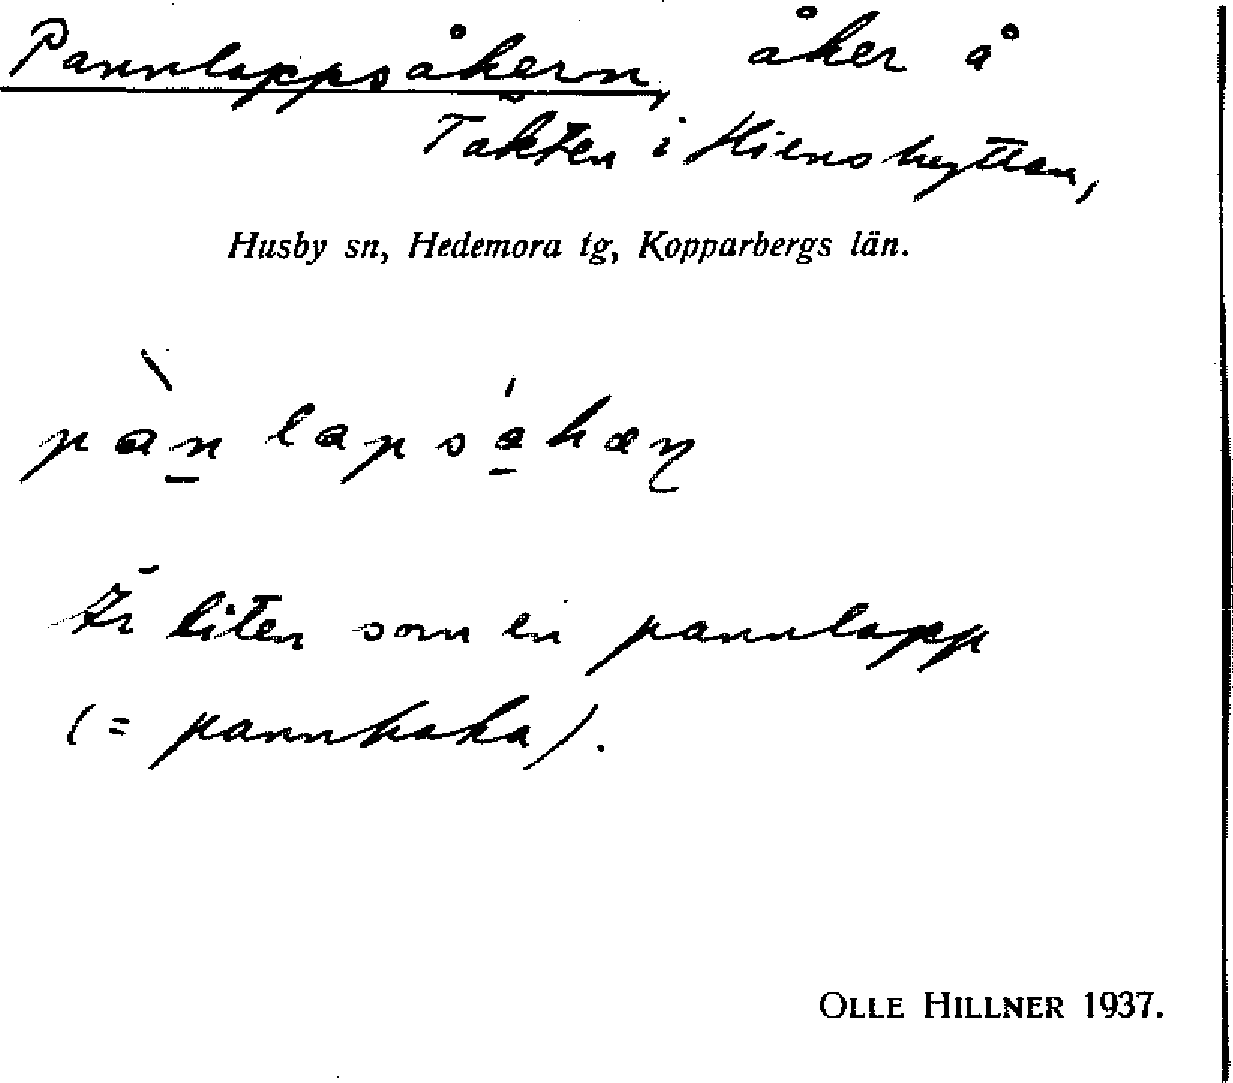 Pannlappsåkern, åker å
Täkten i Hienshyttan,
Husby sn, Hedemora tg, Kopparbergs län.
Är liten som en pannlapp
(= pannkaka).
OLLE HILLNER 1937.